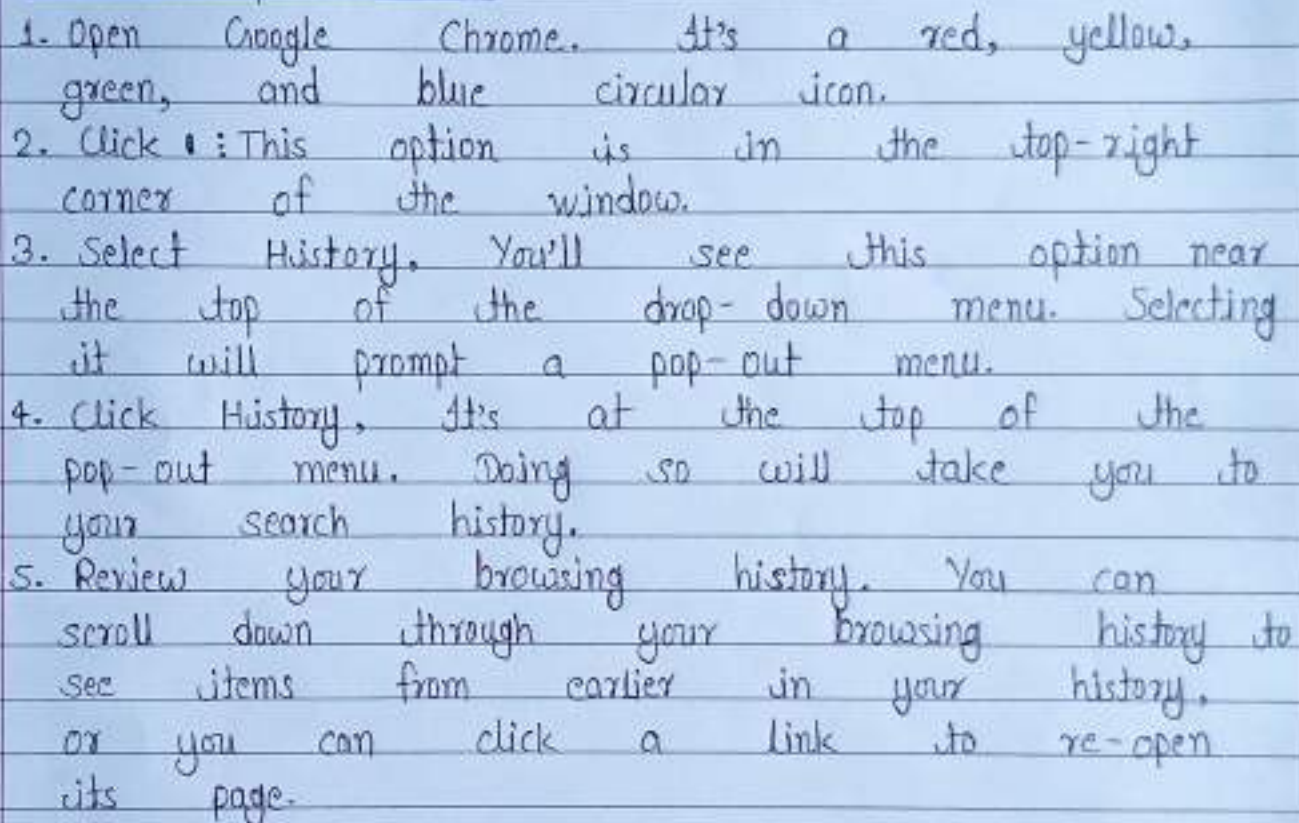 1. Open Google Chrome. It's a red, yellow,
green, and blue circular icon.
2. Click ⋮ This option is in the top-right
corner of the window.
3. Select History. You'll see this option near
the top of the drop-down menu. Selecting
it will prompt a pop-out menu.
4. Click History, It's at the top of the
pop-out menu. Doing so will take you to
your search history.
5. Review your browsing history. You can
scroll down through your browsing history to
see items from earlier in your history,
or you can click a link to re-open
its page.